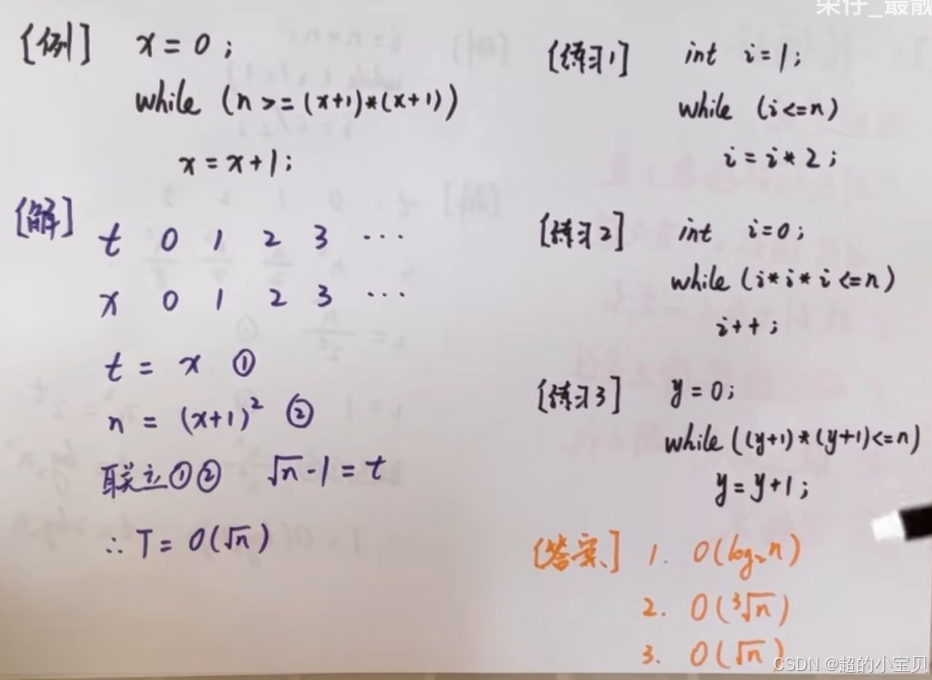 [例] x = 0 ;
while (n >= (x+1)*(x+1))
x = x+1 ;
[解]
t 0 1 2 3 ...
x 0 1 2 3 ...
t = x ①
n = (x+1)² ②
联立①② √n - 1 = t
∴ T = O(√n)
[练习1] int i=1;
while (i<=n)
i = i*2 ;
[练习2] int i=0;
while (i*i*i <=n)
i++ ;
[练习3] y = 0;
while ((y+1)*(y+1)<=n)
y = y+1 ;
[答案] 1. O(log₂n)
2. O(³√n)
3. O(√n)
CSDN @超的小宝贝